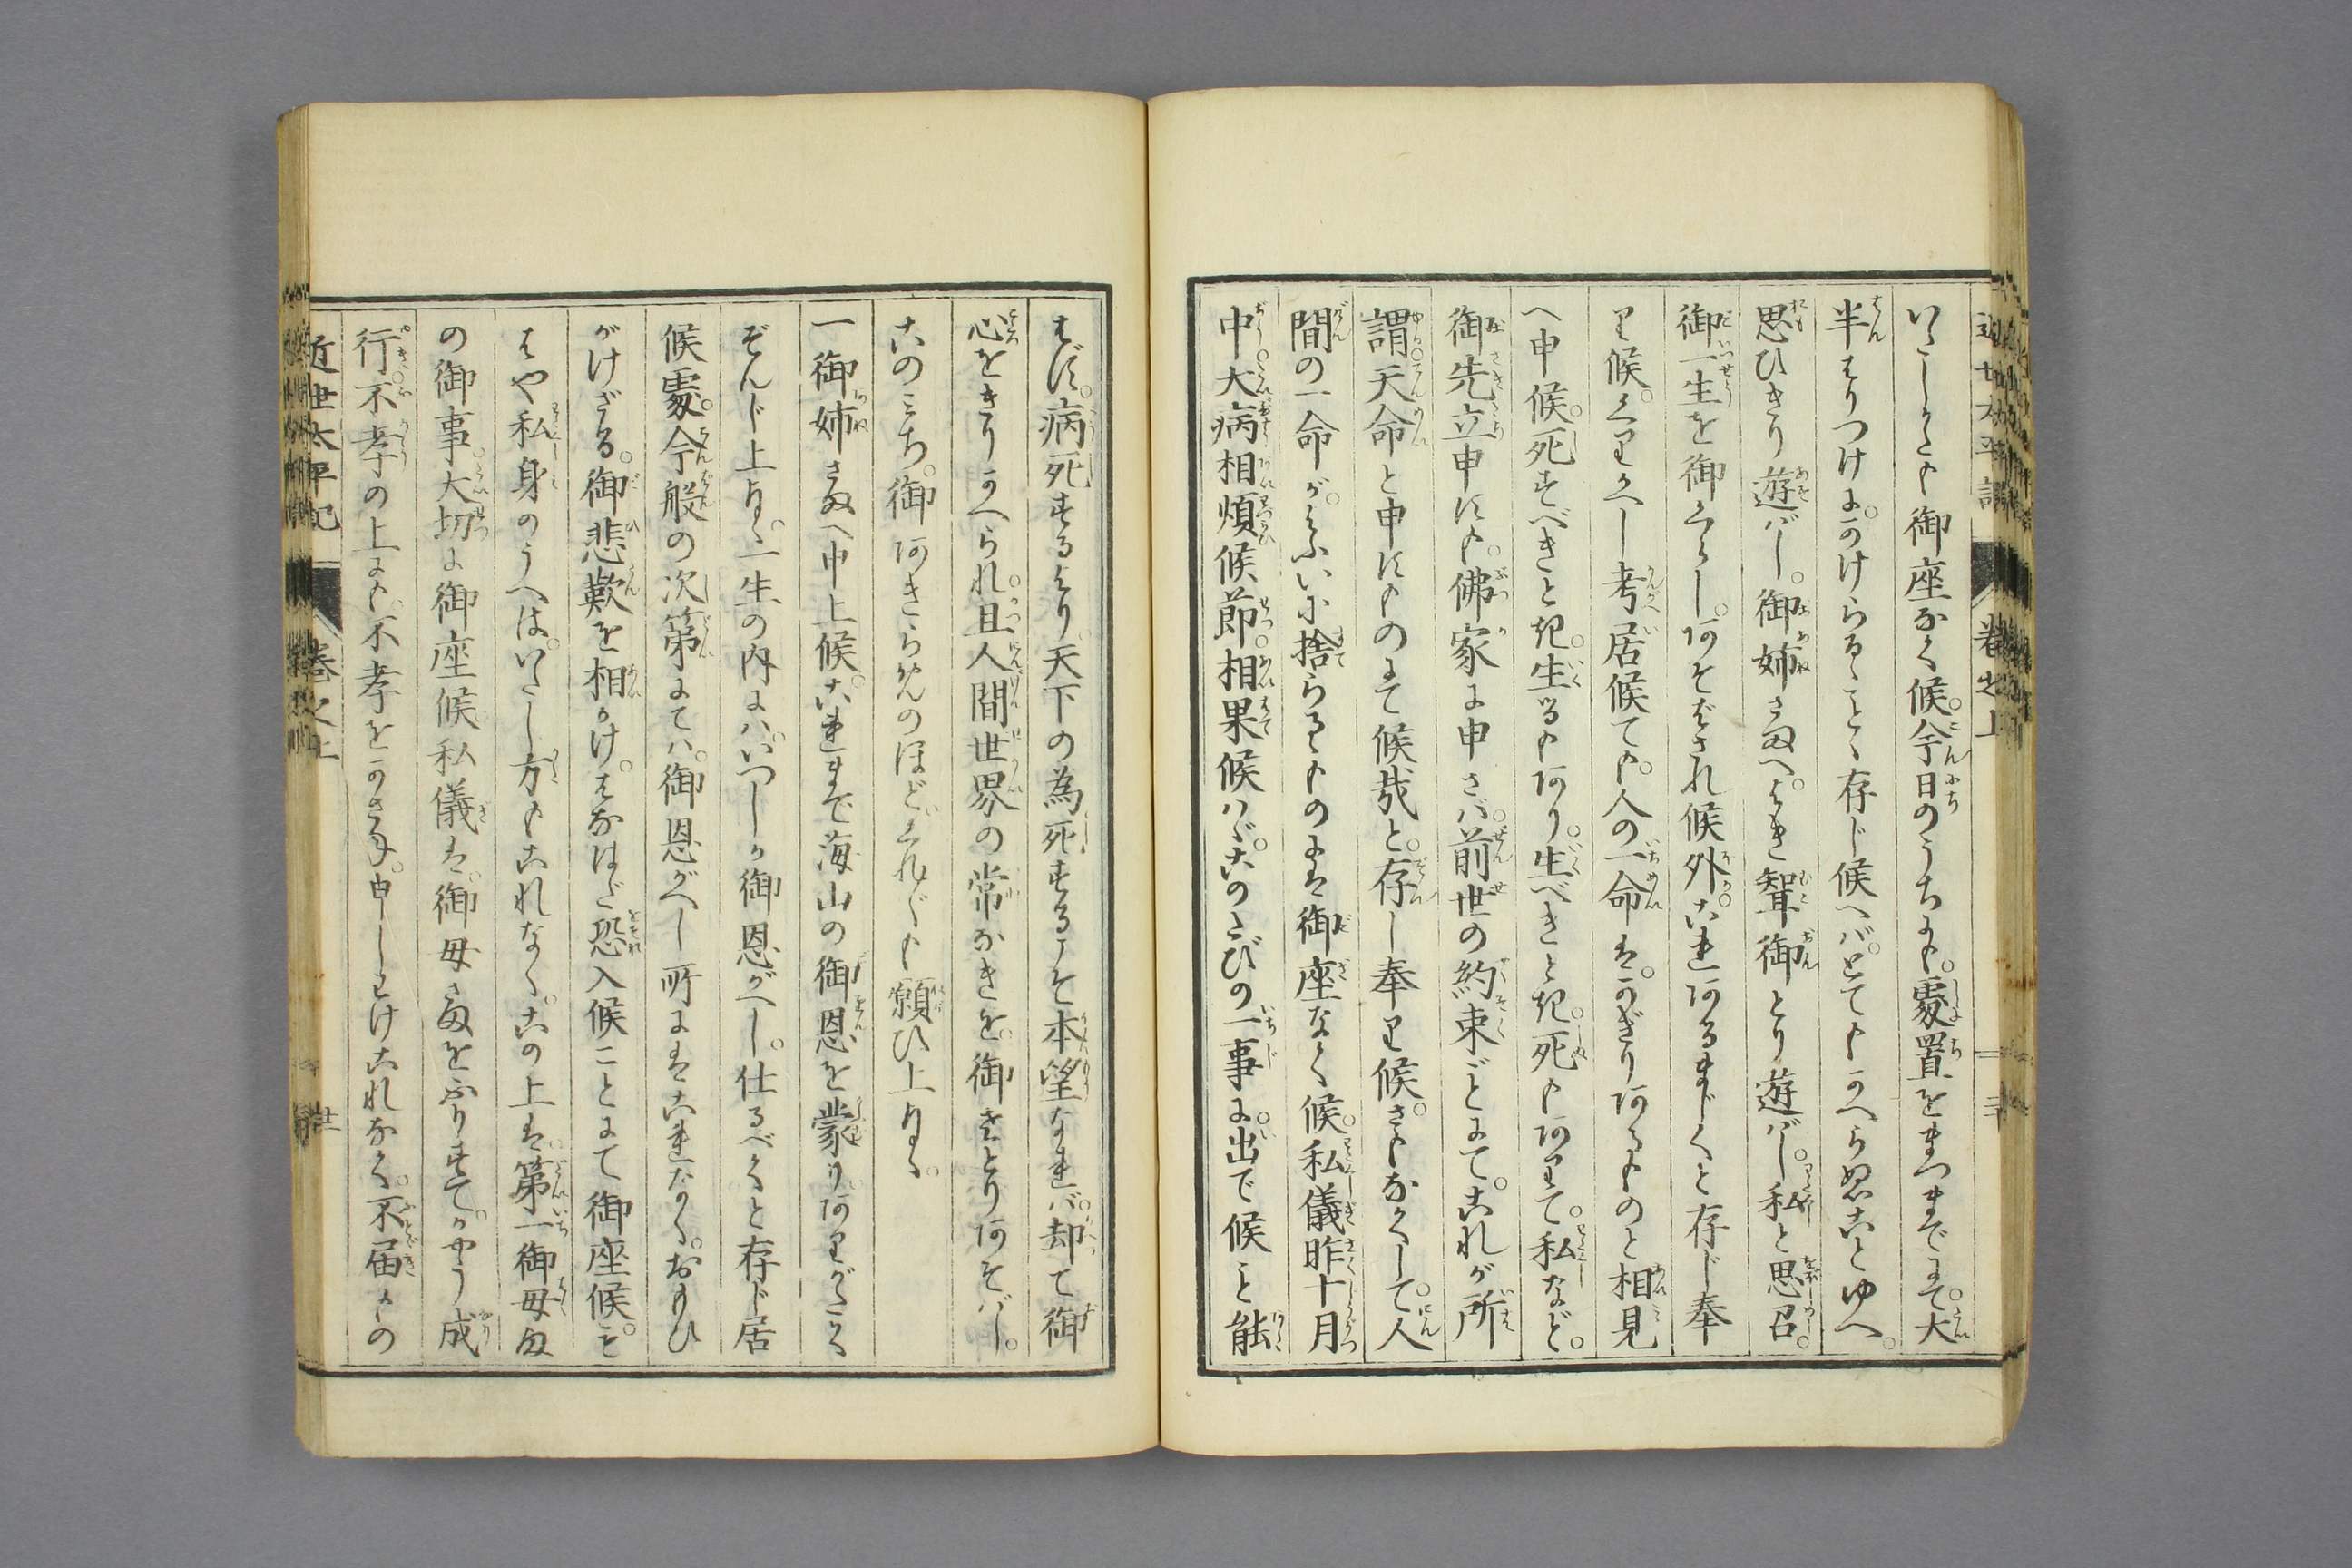 いたしかたも御座なく候今日のうちにも處置をまつまでにて大
半はりつけにかけらるゝこと存じ候へバとてもかへらぬことゆへ
思ひきり遊バし御姉さまへよき聟御とり遊バし私と思召
御一生を御くらしあそばされ候外これあるまじくと存じ奉
り候くりかへし考居候ても人の一命はかぎりあるものと相見
へ申候死すべきとき生るもあり生べきとき死もありて私など
御先立申すも佛家に申さバ前世の約束ごとにてこれが所
謂天命と申すものにて候哉と存し奉り候さもなくして人
間の一命がふいに捨らるゝものにては御座なく候私儀昨十月
中大病相煩候節相果候ハゞこのたびの一事に出で候こと能
はず病死するより天下の為死するこそ本望なれバ却て御
心をきりかへられ且人間世界の常なきを御さとりあそバし
このみち御あきらめのほどくれ／″＼も願ひ上まゐらせ候
一御姉さまへ申上候これまで海山の御恩を蒙りありがたく
ぞんじ上まゐらせ候一生の内にハいつしか御恩がへし仕るべくと存じ居
候處今般の次第にてハ御恩がへし所にはこれなくおもひ
がけざる御悲歎を相かけはなはだ恐入候ことにて御座候も
はや私身のうへはいたし方もこれなくこの上は第一御母さま
の御事大切に御座候私儀は御母さまをふりすてかやう成
行不孝の上にも不孝をかさね申しわけこれなく不届もの
近世太平記 巻之上